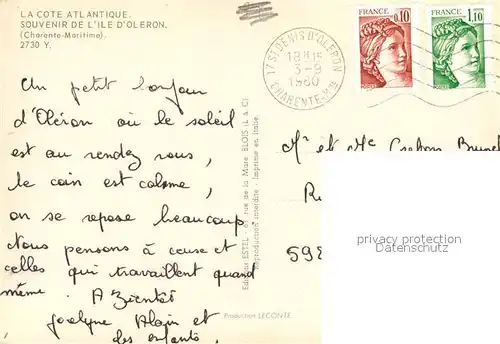 LA COTE ATLANTIQUE.
SOUVENIR DE L'ILE D'OLERON.
(Charente-Maritime).
2730 Y.
17 ST DENIS D'OLERON
18H15
3-9
1980
CHARENTE-Mme
FRANCE
0,10
FRANCE
1,10
Un petit bonjour
d'Oléron où le soleil
est au rendez vous,
le coin est calme,
on se repose beaucoup
Nous pensons à ceuse et
celles qui travaillent quand
même. A Bientôt
Jocelyne Alain et
les enfants,
Editions ESTEL - rue de la Mare BLOIS (L & C)
Reproduction interdite - Imprimé en Italie
Production LECONTE
Mr et Me
privacy protection
Datenschutz